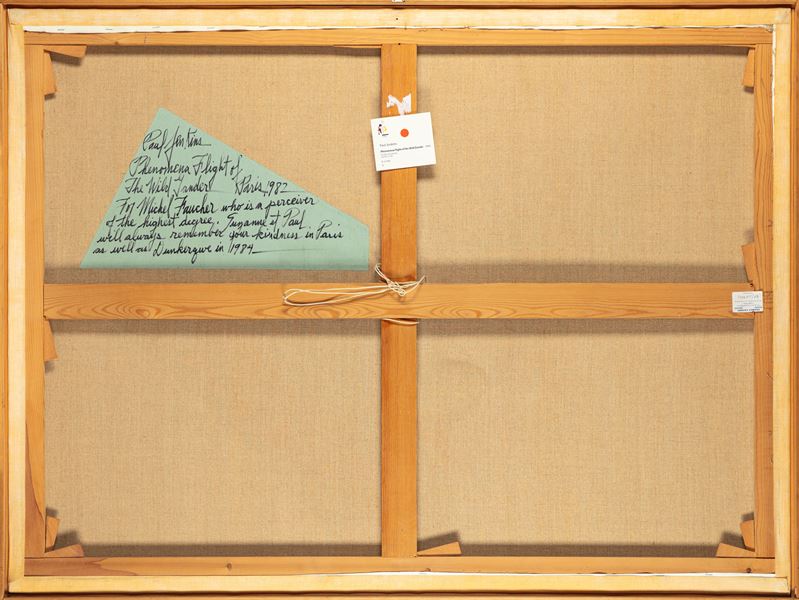 Paul Jenkins
Phenomena Flight of
The Wild Gander Paris, 1982
For Michel Faucher who is a perceiver
of the highest degree. Suzanne et Paul
will always remember your kindness in Paris
as well as Dunkerque in 1984
Paul Jenkins